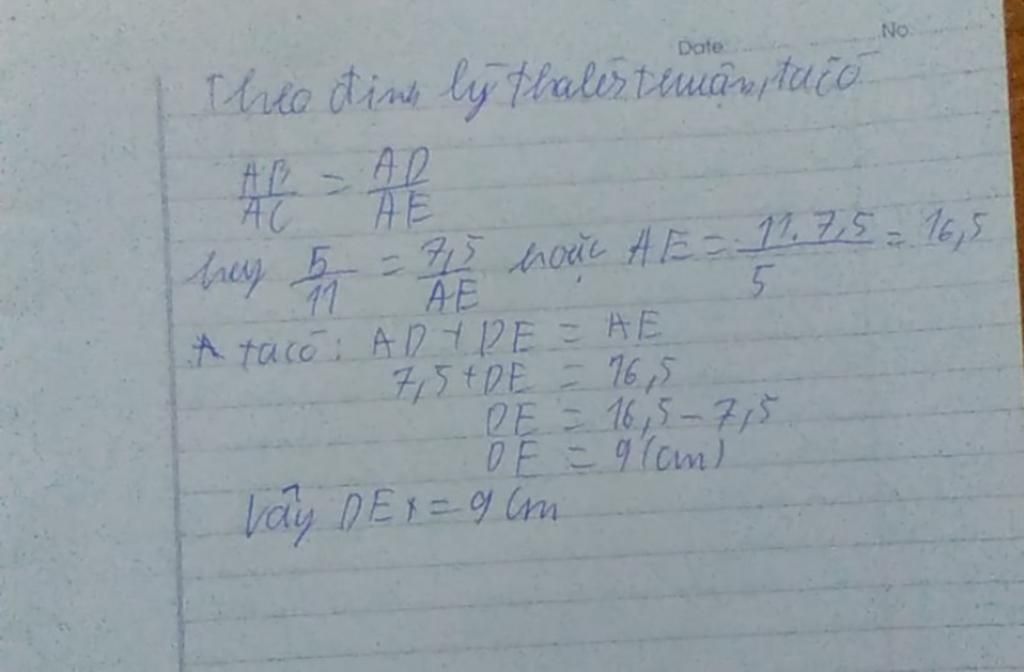 Date No
Theo định lý thalès thuận, ta có
AB/AC = AD/AE
hay 5/11 = 7,5/AE hoặc AE = 11.7,5/5 = 16,5
* ta có: AD + DE = AE
7,5 + DE = 16,5
DE = 16,5 - 7,5
DE = 9 (cm)
Vậy DE x = 9 cm